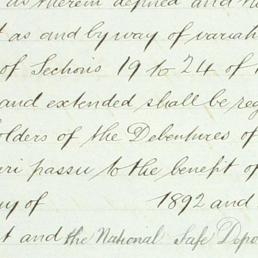 as therein defined and
t as and by way of variat
of Sections 19 to 24 of t
and extended shall be reg
olders of the Debentures of
ari passu to the benefit of
ay of 1892 and
t and the National Safe Depo